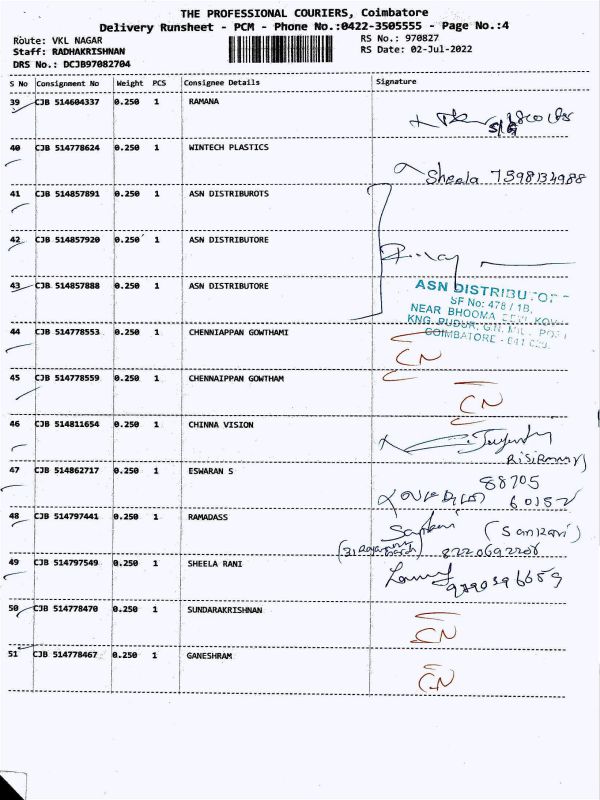 THE PROFESSIONAL COURIERS, Coimbatore
Delivery Runsheet - PCM - Phone No.:0422-3505555 - Page No.:4
Route: VKL NAGAR RS No.: 970827
Staff: RADHAKRISHNAN RS Date: 02-Jul-2022
DRS No.: DCJB97082704
S No Consignment No Weight PCS Consignee Details Signature
39 CJB 514604337 0.250 1 RAMANA
40 CJB 514778624 0.250 1 WINTECH PLASTICS
Sheela 7598134988
41 CJB 514857891 0.250 1 ASN DISTRIBUROTS
42 CJB 514857920 0.250 1 ASN DISTRIBUTORE
43 CJB 514857888 0.250 1 ASN DISTRIBUTORE
ASN DISTRIBUTOR
SF No: 478 / 1B,
NEAR BHOOMA
KNG. PUDUR, G.N. MILL POST
COIMBATORE - 641 029.
44 CJB 514778553 0.250 1 CHENNIAPPAN GOWTHAMI
CN
45 CJB 514778559 0.250 1 CHENNAIPPAN GOWTHAM
CN
46 CJB 514811654 0.250 1 CHINNA VISION
47 CJB 514862717 0.250 1 ESWARAN S
88705
60152
48 CJB 514797441 0.250 1 RAMADASS
(Sankari)
8220692208
49 CJB 514797549 0.250 1 SHEELA RANI
50 CJB 514778470 0.250 1 SUNDARAKRISHNAN
CN
51 CJB 514778467 0.250 1 GANESHRAM
CN